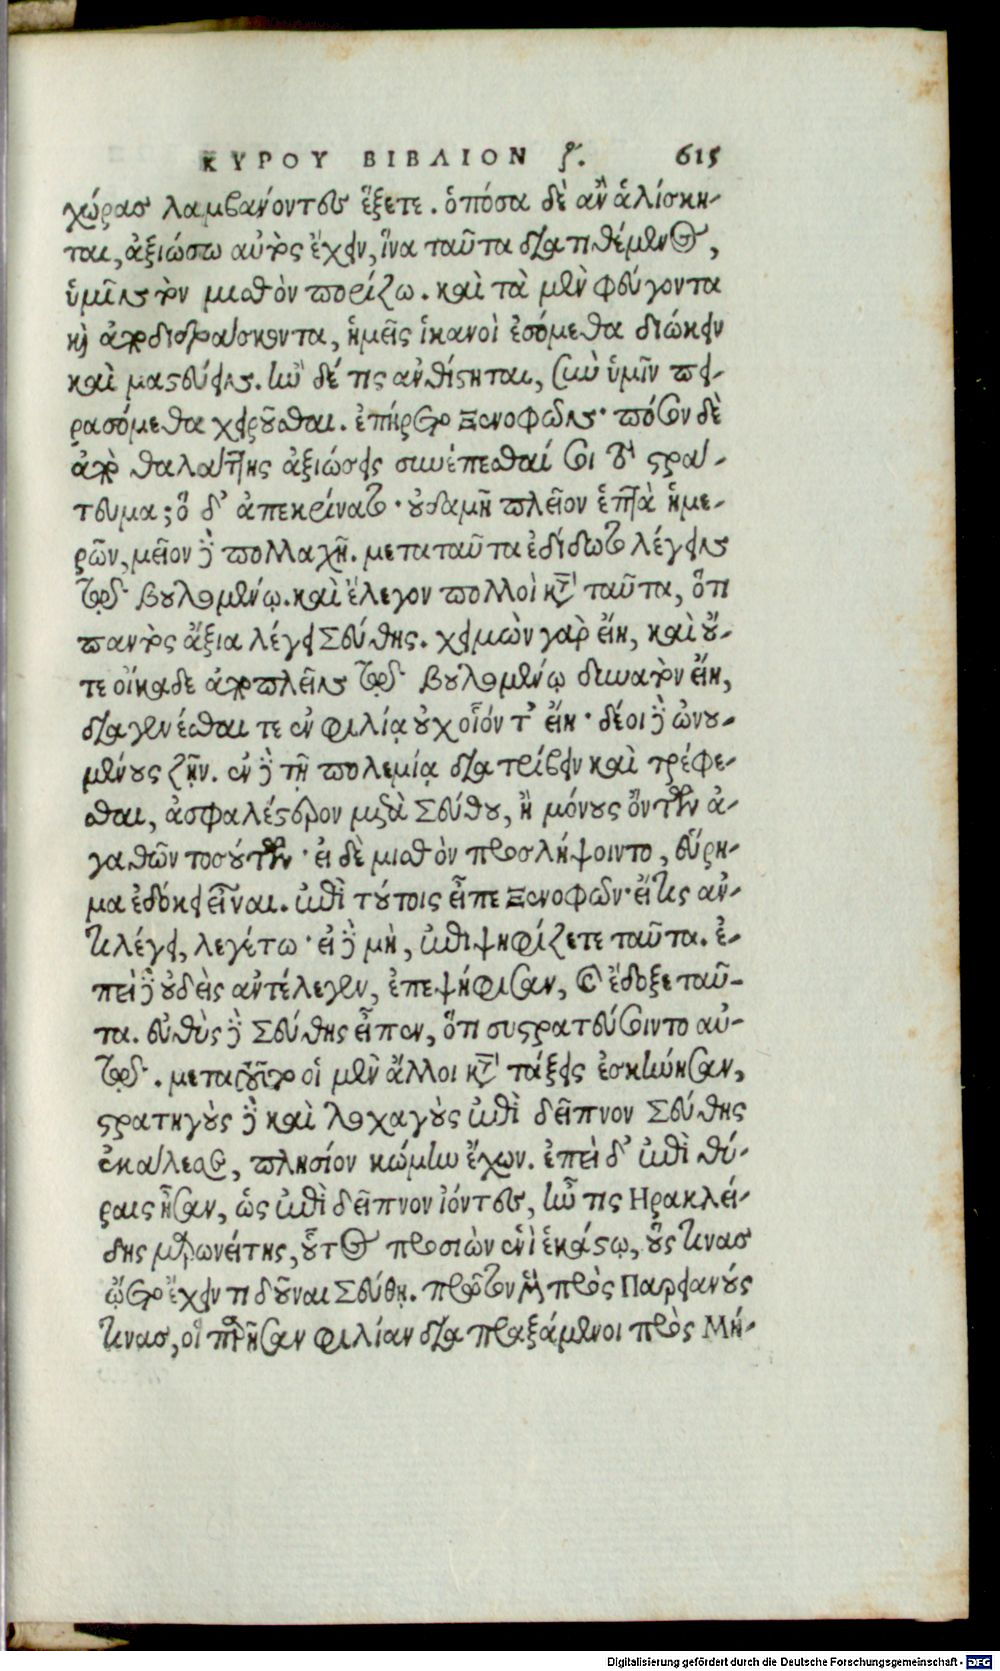 ΚΥΡΟΥ ΒΙΒΛΙΟΝ ϛ. 615
χώρας λαμβανόντες ἕξετε. ὁπόσα δὲ ἂν ἁλίσκη-
ται, ἀξιώσω αὐτὸς ἔχειν, ἵνα ταῦτα διατιθέμενος,
ὑμῖν τὸν μισθὸν πορίζω. καὶ τὰ μὲν φεύγοντα
καὶ ἀποδιδράσκοντα, ἡμεῖς ἱκανοὶ ἐσόμεθα διώκειν
καὶ μαστεύειν. ἢν δέ τις ἀνθίστηται, σὺν ὑμῖν πει-
ρασόμεθα χειροῦσθαι. ἐπήρετο Ξενοφῶν· πόσον δὲ
ἀπὸ θαλάττης ἀξιώσεις συνέπεσθαί σοι τὸ στρά-
τευμα; ὁ δ' ἀπεκρίνατο· οὐδαμῇ πλεῖον ἑπτὰ ἡμε-
ρῶν, μεῖον δὲ πολλαχῇ. μετα ταῦτα ἐδίδοτο λέγειν
τῷ βουλομένῳ. καὶ ἔλεγον πολλοὶ κατὰ ταῦτα, ὅτι
παντὸς ἄξια λέγει Σεύθης. χειμὼν γὰρ εἴη, καὶ οὔ-
τε οἴκαδε ἀποπλεῖν τῷ βουλομένῳ δυνατὸν εἴη,
διαγενέσθαι τε ἐν φιλίᾳ οὐχ οἷόν τ' εἴη· δέοι δὲ ὠνου-
μένους ζῇν. ἐν δὲ τῇ πολεμίᾳ διατρίβειν καὶ τρέφε-
σθαι, ἀσφαλέστερον μετὰ Σεύθου, ἢ μόνους ὄντων ἀ-
γαθῶν τοσούτων· εἰ δὲ μισθὸν προσλήψοιντο, εὕρη-
μα ἐδόκει εἶναι. ἐπὶ τούτοις εἶπε Ξενοφῶν· εἴ τις ἀν-
τιλέγει, λεγέτω· εἰ δὲ μὴ, ἐπιψηφίζετε ταῦτα. ἐ-
πεὶ δὲ οὐδεὶς ἀντέλεγεν, ἐπεψήφισαν, καὶ ἔδοξε ταῦ-
τα. εὐθὺς δὲ Σεύθης εἶπεν, ὅτι συστρατεύσοιντο αὐ-
τῷ. μετα τοῦτο οἱ μὲν ἄλλοι κατὰ τάξεις ἐσκήνησαν,
στρατηγοὺς δὲ καὶ λοχαγοὺς ἐπὶ δεῖπνον Σεύθης
ἐκάλεσε, πλησίον κώμην ἔχων. ἐπεὶ δ' ἐπὶ θύ-
ραις ἦσαν, ὡς ἐπὶ δεῖπνον ἰόντες, ἦν τις Ηρακλεί-
δης μαρωνείτης, οὗτος προσιὼν ἑνὶ ἑκάστῳ, οὕς τινας
ᾤετο ἔχειν τι δοῦναι Σεύθῃ. πρῶτον μὲν πρὸς Παρειανούς
τινας, οἳ παρῆσαν φιλίαν διαπραξάμενοι πρὸς Μή-
Digitalisierung gefördert durch die Deutsche Forschungsgemeinschaft - DFG